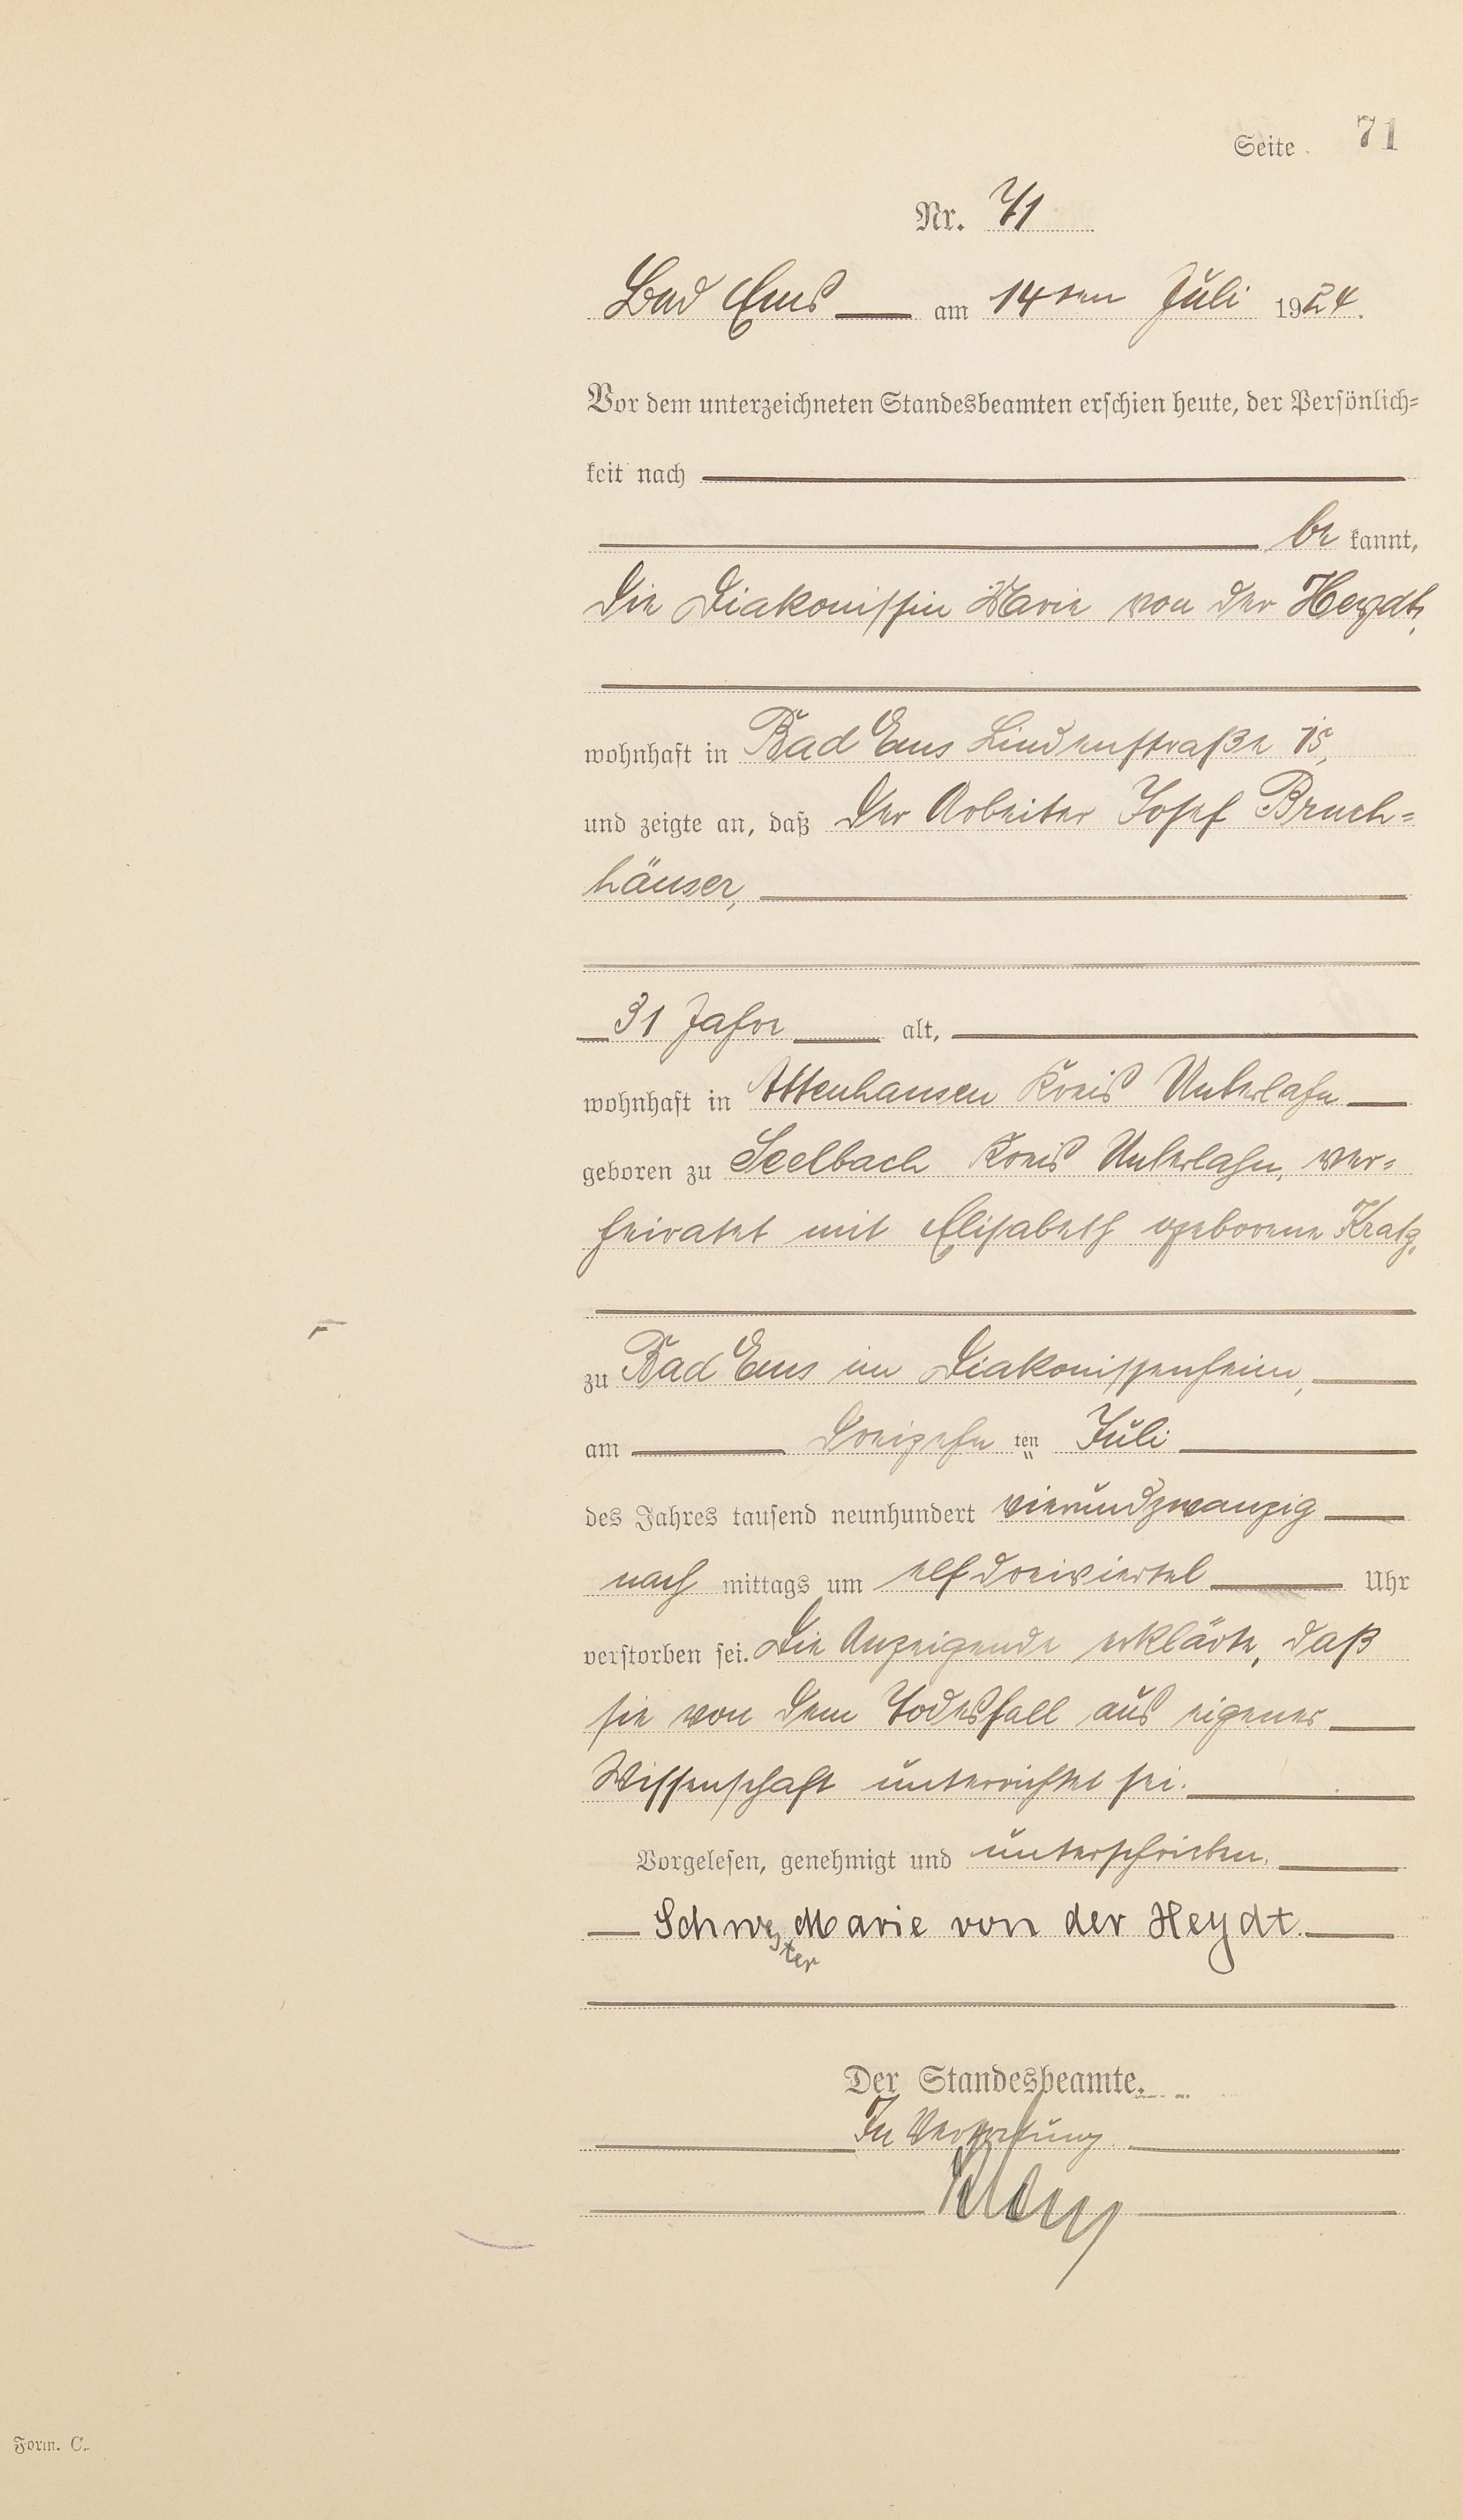 Seite 71
Nr. 71
Bad Ems am 14ten Juli 1924.
Vor dem unterzeichneten Standesbeamten erschien heute, der Persönlich-
keit nach
be kannt,
die Diakonissin Marie von der Heydt,
wohnhaft in Bad Ems Lindenstraße 15,
und zeigte an, daß der Arbeiter Josef Bruch-
häuser,
31 Jahre alt,
wohnhaft in Attenhausen Kreis Unterlahn
geboren zu Seelbach Kreis Unterlahn, ver-
heiratet mit Elisabeth geborene Kratz,
zu Bad Ems im Diakonissenheim,
am dreizehn ten Juli
des Jahres tausend neunhundert vierundzwanzig
nach mittags um elf dreiviertel Uhr
verstorben sei. Die Anzeigende erklärte, daß
sie von dem Todesfall aus eigener
Wissenschaft unterrichtet sei.
Vorgelesen, genehmigt und unterschrieben.
Schwester Marie von der Heydt.
Der Standesbeamte.
In Vertretung
Form. C.